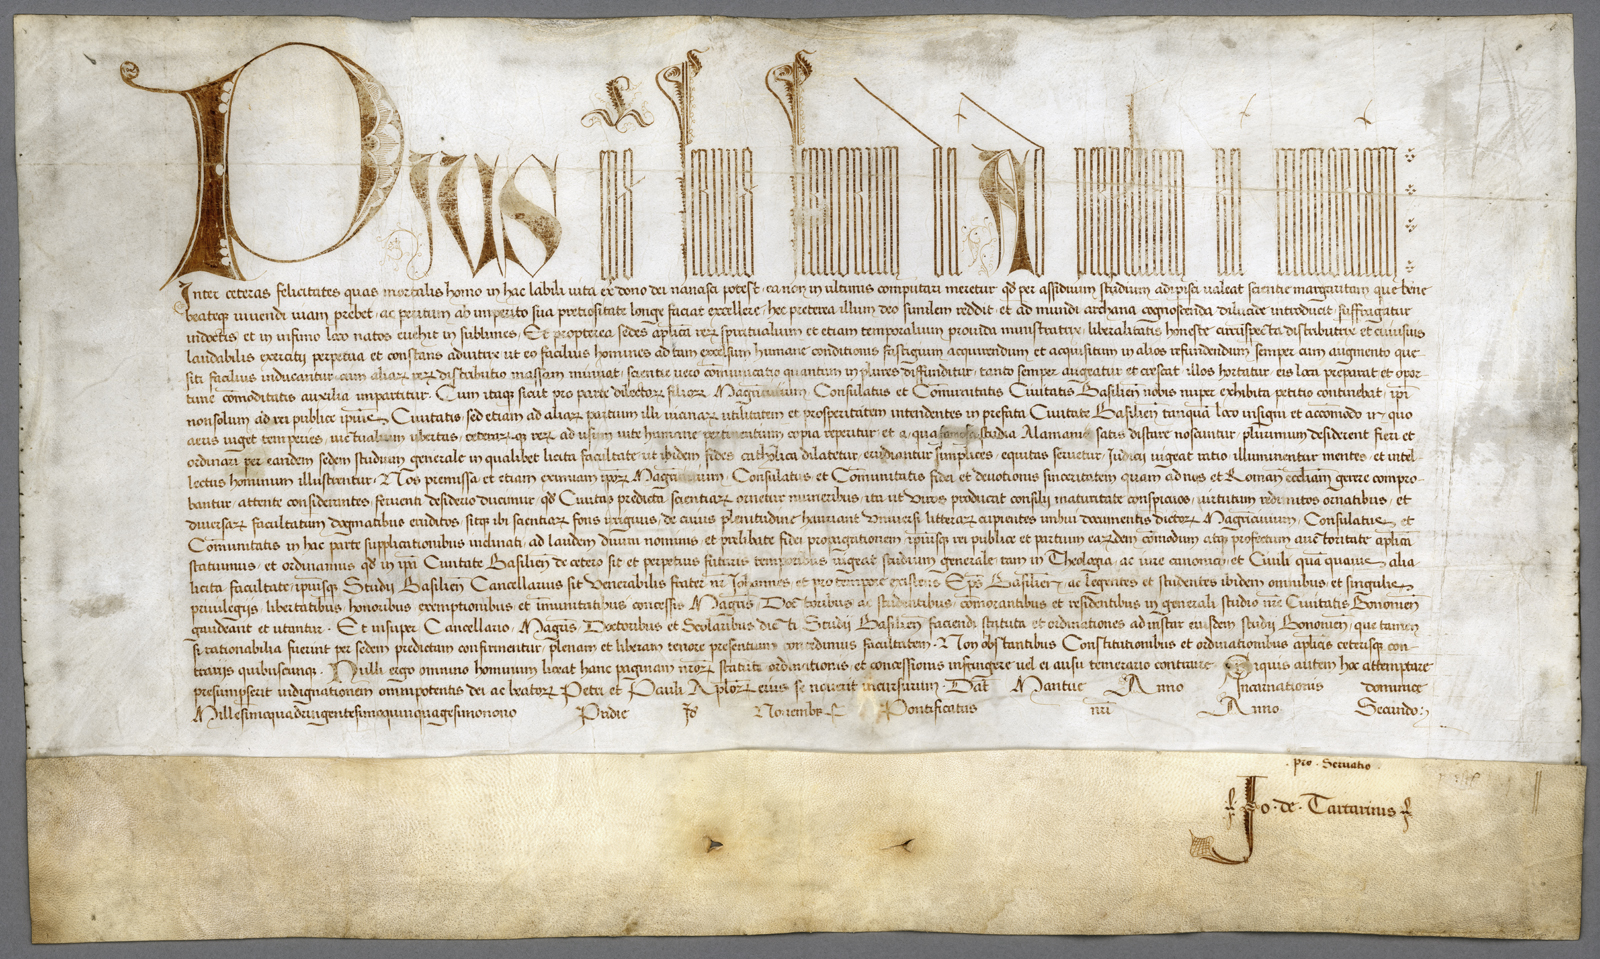 Pius
Inter ceteras felicitates quas mortalis homo in hac labili vita ex dono dei nancisci potest, ea non in ultimis computari meretur qd per assiduum studium adipisci valeat scientie margaritam que bene
beateque vivendi viam prebet, ac peritum ab imperito sua pretiositate longe faciat excellere, hec preterea illum deo similem reddit, et ad mundi archana cognoscenda dilucide introducit, suffragatur
indoctis et in infimo loco natos evehit in sublimes, Et propterea sedes aplica rerz spiritualium et etiam temporalium provida ministratrix, liberalitatis honeste circumspecta distributrix et cuiusvis
laudabilis exercitij perpetua et constans adiutrix ut eo facilius homines ad tam excelsum humane conditionis fastigium acquirendum et acquisitum in alios refundendum semper cum augmento que
siti facilius inducantur, cum aliarz rerz distributio massam minuat, scientie vero comunicatio quantum in plures diffunditur, tanto semper augeatur et crescat, illos hortatur, eis loca preparat et opor
tune comoditatis auxilia impartitur. Cum itaque sicut pro parte dilectorz filiorz Magistrorum Consulatus et Comunitatis Civitatis Basilien nobis nuper exhibita petitio continebat, ipi
non solum ad rei publice ipius Civitatis sed etiam ad aliarz partium illi vicinarz utilitatem et prosperitatem intendentes in prefata Civitate Basilien tanqua loco insigni et accomodo in quo
aeris viget temperies, victualium ubertas, ceterarqz rerz ad usum vite humane pertinentium copia reperitur, et a qua famosa studia Alamanie satis distare noscuntur, plurimum desiderent fieri et
ordinari per eandem sedem studium generale in qualibet licita facultate, ut ibidem fides catholica dilatetur, erudiantur simplices, equitas servetur, Iudicij vigeat ratio, illuminentur mentes, et intel
lectus hominum illustrentur, Nos premissa et etiam eximiam iporz Magistrorum, Consulatus et Comunitatis fidei et devotionis sinceritatem quam ad nos et Roman eccliam gerere compro
bantur, attente considerantes, ferventi desiderio ducimur, qd Civitas predicta scientiarz ornetur muneribus, ita ut viros producat consilij maturitate conspicuos, virtutum redimitos ornatibus, et
diversarz facultatum dogmatibus eruditos, sitqz ibi scientiarz fons irriguus, de cuius plenitudine hauriant universi litterarz cupientes imbui documentis dictorz Magistrorum, Consulatus et
Comunitatis in hac parte supplicationibus inclinati, ad laudem divini nominis, et prelibate fidei propagationem, ipiusqz rei publice et partium earzdem comodum atqz profectum auctoritate aplica
statuimus, et ordinamus qd in ipa Civitate Basilien de cetero sit et perpetuis futuris temporibus vigeat studium generale, tam in Theologia, ac iure canonico et Civili qua quavis alia
licita facultate, ipiusqz Studij Basilien Cancellarius sit Venerabilis frater nr Iohannes et pro tempore existens Eps Basilien, ac legentes et studentes ibidem omnibus et singulis
privilegijs, libertatibus, honoribus, exemptionibus et imunitatibus concessis Magris, Doctoribus ac studentibus, comorantibus et residentibus in generali studio nre Civitatis Bononien
gaudeant et utantur. Et insuper Cancellario, Magris, Doctoribus et Scolaribus dicti Studij Basilien faciendi statuta et ordinationes ad instar eiusdem studij Bononien, que tamen
si rationabilia fuerint per sedem predictam confirmentur, plenam et liberam tenore presentium concedimus facultatem. Non obstantibus Constitutionibus et ordinationibus aplicis ceterisqz con
trarijs quibuscunqz. Nulli ergo omnino hominum liceat hanc paginam nrorz statuti, ordinationis, et concessionis infringere vel ei ausu temerario contraire. Siquis autem hoc attemptare
presumpserit indignationem omnipotentis dei ac beatorz Petri et Pauli Aplorz eius se noverit incursurum. Dat Mantue Anno Incarnationis dominice
Millesimoquadringentesimoquinquagesimonono Pridie Id Novembr Pontificatus nri Anno Secundo
pro Servatio
Jo. de. Tartarinis